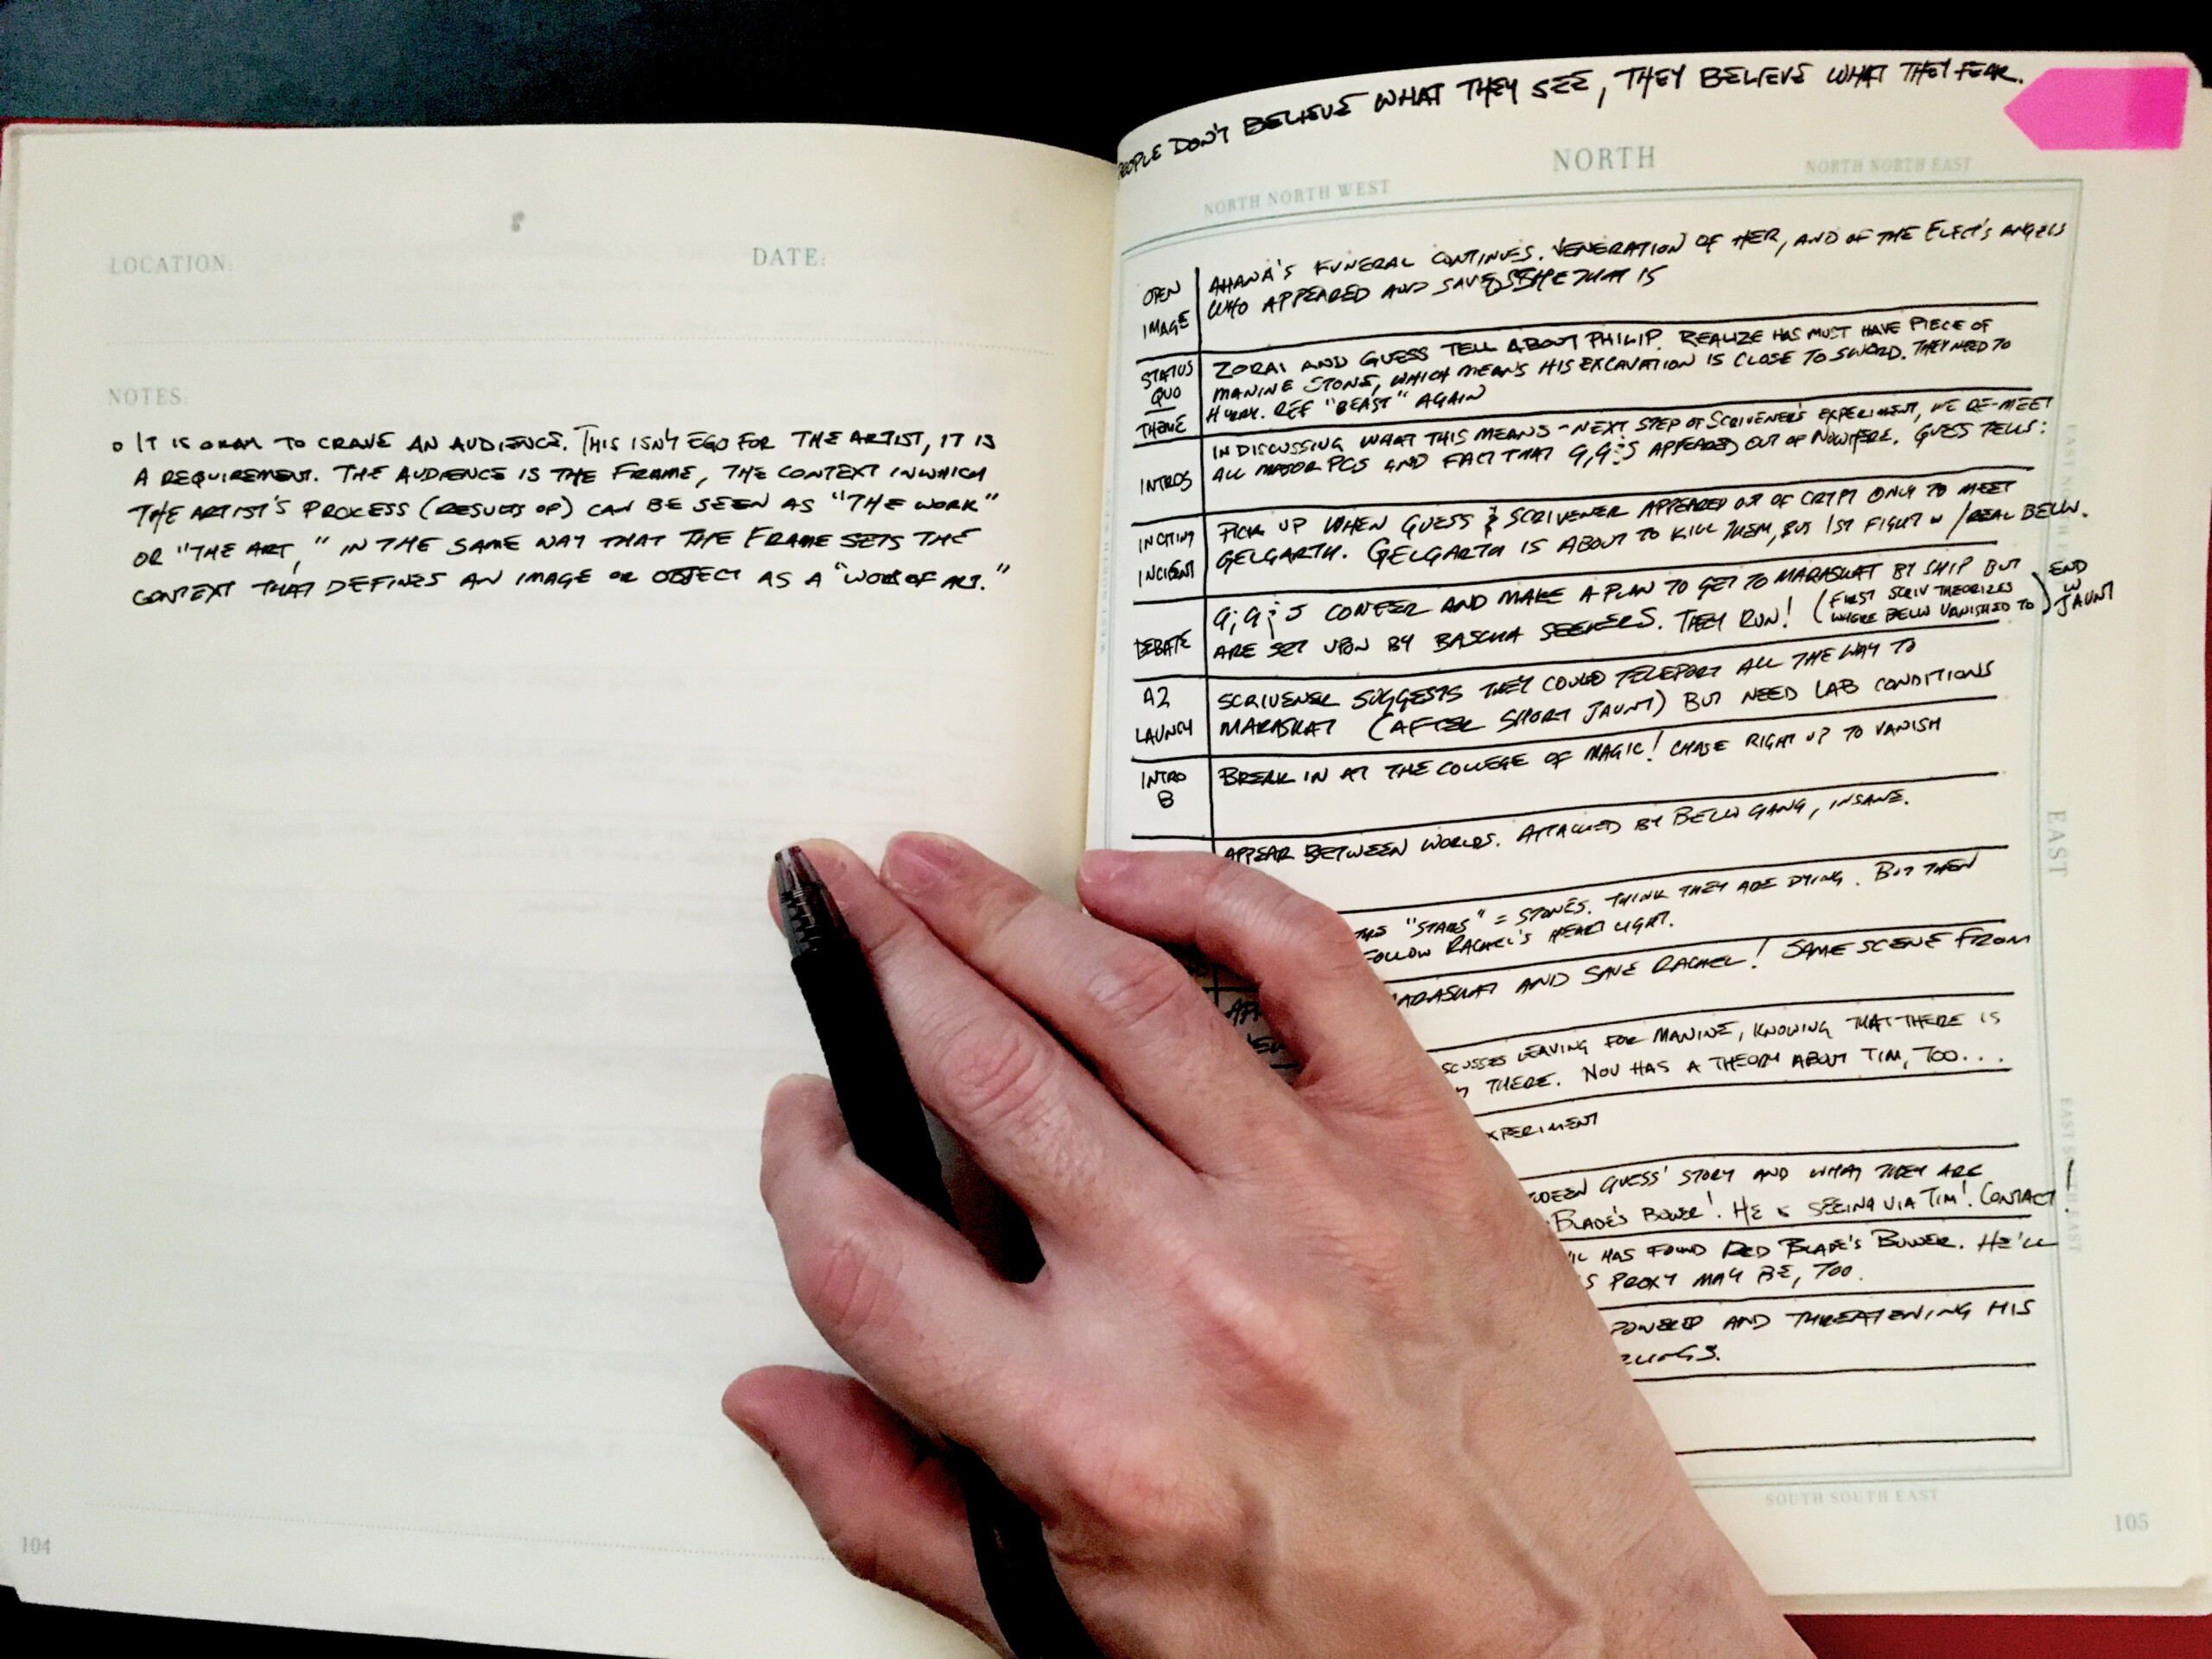 LOCATION:
DATE:
NOTES:
o IT IS OKAY TO CRAVE AN AUDIENCE. THIS ISN'T EGO FOR THE ARTIST, IT IS
A REQUIREMENT. THE AUDIENCE IS THE FRAME, THE CONTEXT IN WHICH
THE ARTIST'S PROCESS (RESULTS OF) CAN BE SEEN AS "THE WORK"
OR "THE ART," IN THE SAME WAY THAT THE FRAME SETS THE
CONTEXT THAT DEFINES AN IMAGE OR OBJECT AS A "WORK OF ART."
104
PEOPLE DON'T BELIEVE WHAT THEY SEE, THEY BELIEVE WHAT THEY FEAR.
NORTH
NORTH NORTH WEST
NORTH NORTH EAST
OPEN
IMAGE
AHANA'S FUNERAL CONTINUES. VENERATION OF HER, AND OF THE ELECT'S ANGELS
WHO APPEARED AND SAVED SHE THAT IS
STATUS
QUO
THEME
ZORAI AND GUESS TELL ABOUT PHILIP. REALIZE HAS MUST HAVE PIECE OF
MANINE STONE, WHICH MEANS HIS EXCAVATION IS CLOSE TO SWORD. THEY NEED TO
HURRY. REF "BEAST" AGAIN
INTROS
IN DISCUSSING WHAT THIS MEANS - NEXT STEP OF SCRIVENER'S EXPERIMENT, WE RE-MEET
ALL MAJOR PCS AND FACT THAT G, G & S APPEARED OUT OF NOWHERE. GUESS TELLS:
INCITING
INCIDENT
PICK UP WHEN GUESS & SCRIVENER APPEARED OUT OF CRYPT ONLY TO MEET
GELGARTH. GELGARTH IS ABOUT TO KILL THEM, BUT 1ST FIGHT W/REAL BELLW.
DEBATE
G, G & S CONFER AND MAKE A PLAN TO GET TO MARASKAT BY SHIP BUT
ARE SET UPON BY BASCHA SEEKERS. THEY RUN! (FIRST SCRIV THEORIZES
WHERE BELLW VANISHED TO)
END
W
JAUNT
A2
LAUNCH
SCRIVENER SUGGESTS THEY COULD TELEPORT ALL THE WAY TO
MARASKAT (AFTER SHORT JAUNT) BUT NEED LAB CONDITIONS
INTRO
B
BREAK IN AT THE COLLEGE OF MAGIC! CHASE RIGHT UP TO VANISH
APPEAR BETWEEN WORLDS. ATTACKED BY BELLW GANG, INSANE.
THE "STARS" = STONES. THINK THEY ARE DYING. BUT THEN
FOLLOW RACHEL'S HEART LIGHT.
MARASKAT AND SAVE RACHEL! SAME SCENE FROM
LEAVING FOR MANINE, KNOWING THAT THERE IS
THERE. NOV HAS A THEORY ABOUT TIM, TOO...
EXPERIMENT
GUESS' STORY AND WHAT THEY ARE
BLADE'S BOWER! HE IS SEEING VIA TIM! CONTACT!
HAS FOUND RED BLADE'S BOWER. HE'LL
PROXY MAY BE, TOO.
POWERED AND THREATENING HIS
EAST
SOUTH SOUTH EAST
105